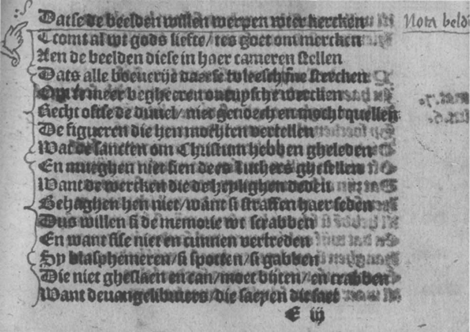 Datse de beelden willen werpen wter kercken
Nota beld
T comt al wt gods liefte / tes goet om mercken
Aen de beelden diese in haer cameren stellen
Dats alle boeuerije daerse tvleesch me stercken
Om te meer begheeren onkuysche wercken
Recht oftse de duuel / niet genoech en mocht quellen
De figueren die hen mochten vertellen
Wat de sancten om Christum hebben gheleden
En mueghen niet sien deed Luthers ghesellen
Want de wercken die de heylighen deden
Behaghen hen niet / want si straffen haer seden
Dus willen si de memorie wt scrabben
En want sise niet en cunnen vertreden
Sy blasphemeren / si spotten / si gabben
Die niet gheslaen en can / moet bijten / en crabben
Want deuangelibuters / die saepen die
E iij